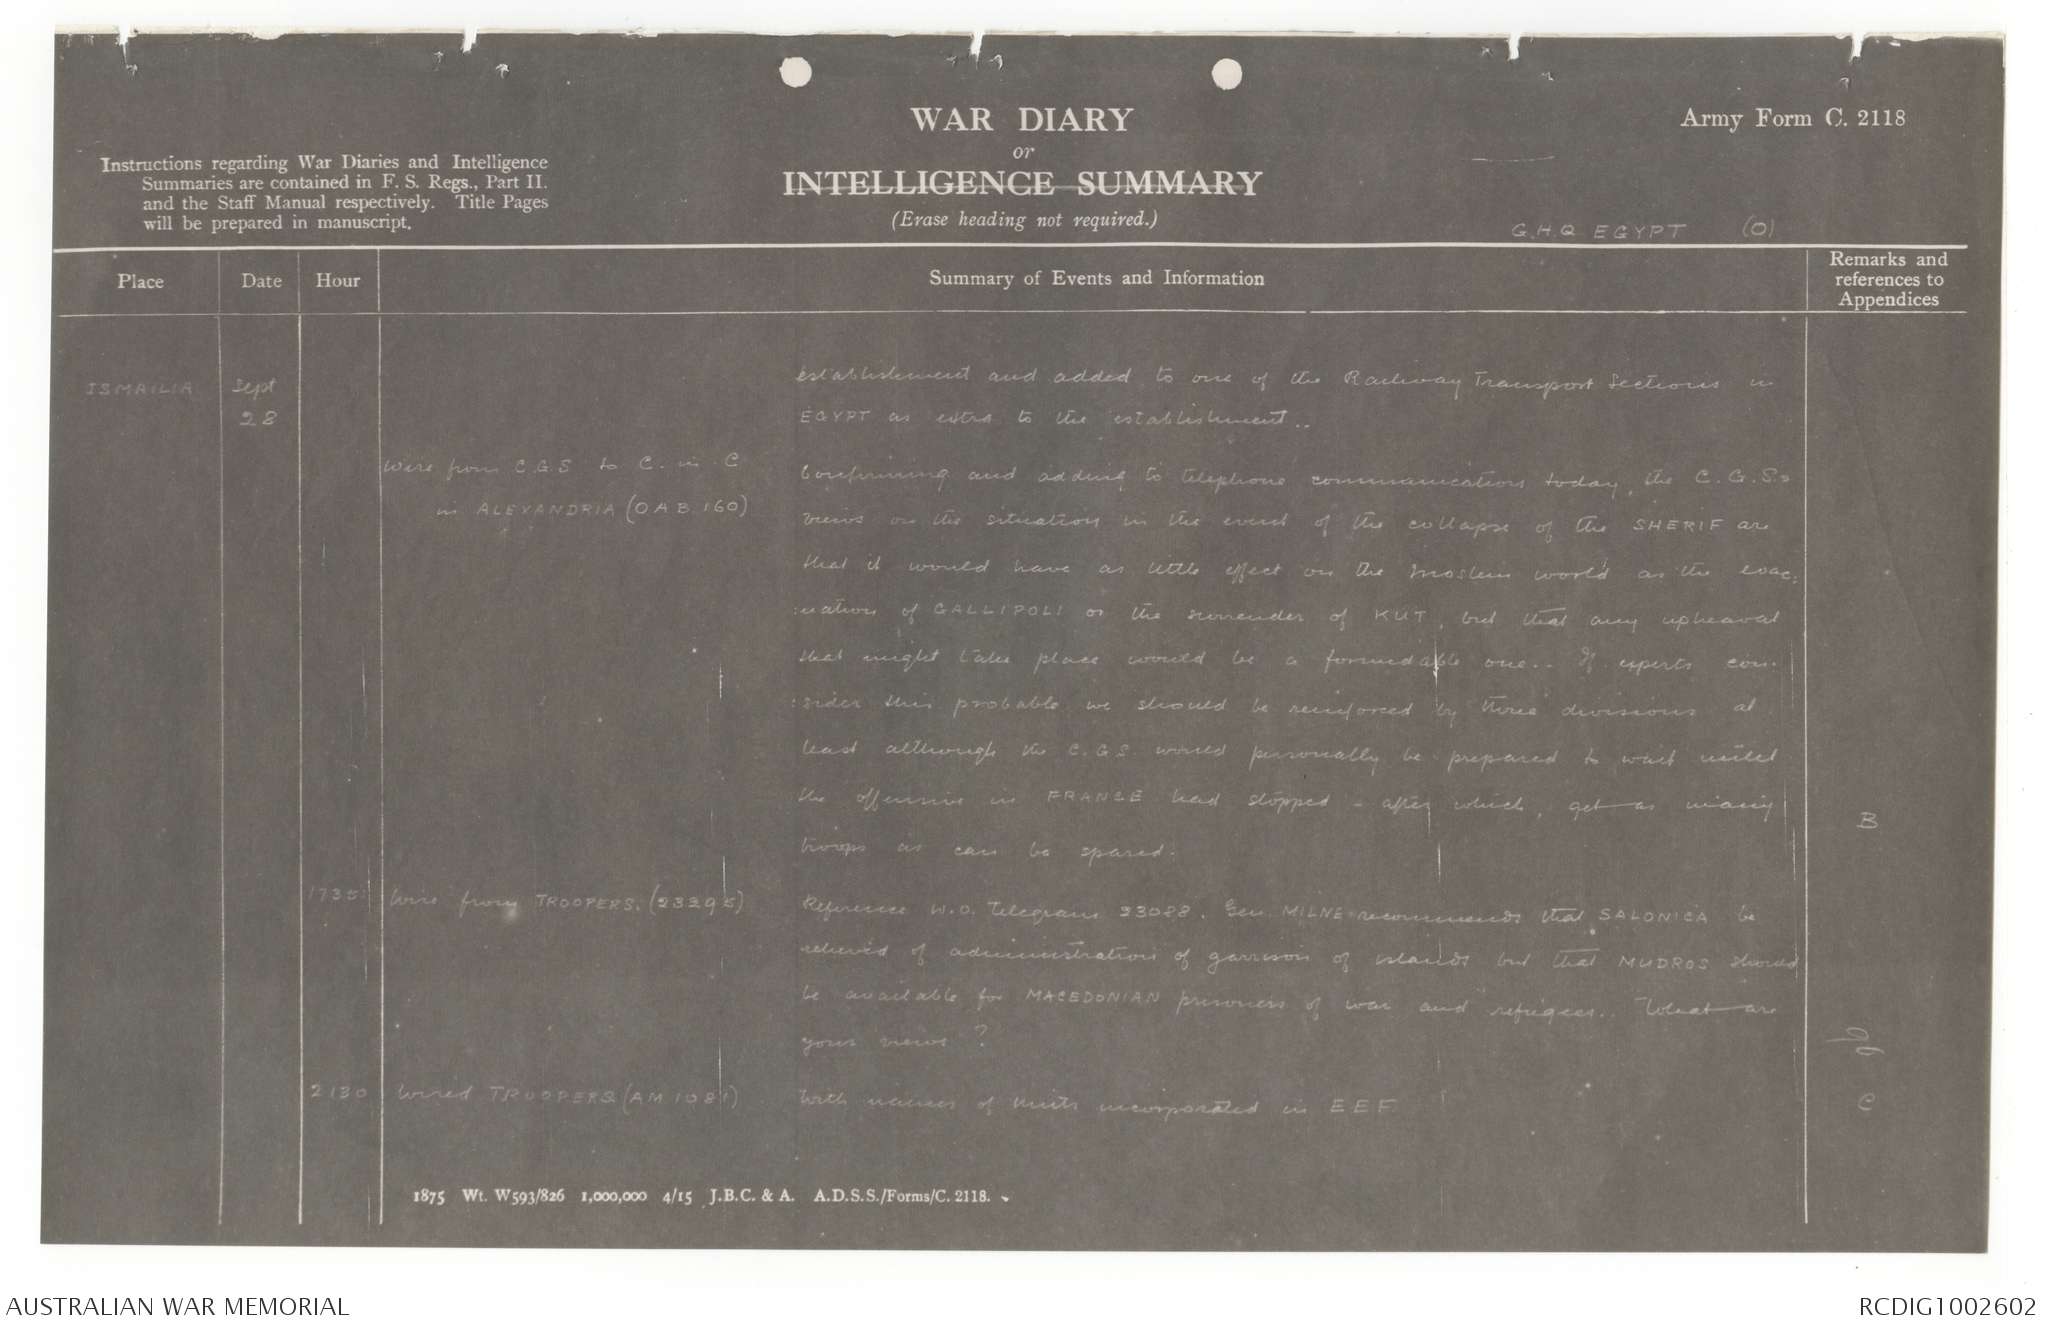 WAR DIARY
or
INTELLIGENCE SUMMARY
(Erase heading not required.)
Army Form C. 2118
Instructions regarding War Diaries and Intelligence
Summaries are contained in F. S. Regs., Part II.
and the Staff Manual respectively. Title Pages
will be prepared in manuscript.
G.H.Q EGYPT (O)
Place
Date
Hour
Summary of Events and Information
Remarks and
references to
Appendices
ISMAILIA
Sept
28
establishment and added to one of the Railway Transport Sections in
EGYPT as extra to the establishment..
Wire from C.G.S to C. in C
in ALEXANDRIA (OAB.160)
Confirming and adding to telephone communications today, the C.G.S.s
views on the situation in the event of the collapse of the SHERIF are
that it would have as little effect on the moslem world as the evac:
:uation of GALLIPOLI or the surrender of KUT, but that any upheaval
that might take place would be a formidable one.. If experts con:
:sider this probable we should be reinforced by three divisions at
least although the C.G.S. would personally be prepared to wait until
the offensive in FRANCE had stopped - after which, get as many
troops as can be spared.
B
1735
Wire from TROOPERS. (23295)
Reference W.O. Telegram 23088. Gen. MILNE recommends that SALONICA be
relieved of administration of garrison of islands but that MUDROS should
be available for MACEDONIAN prisoners of war and refugees.. What are
your views ?
2130
Wired TROOPERS (AM 1081)
With names of units incorporated in EEF
C
1875 Wt. W593/826 1,000,000 4/15 J.B.C. & A. A.D.S.S./Forms/C. 2118.
AUSTRALIAN WAR MEMORIAL
RCDIG1002602